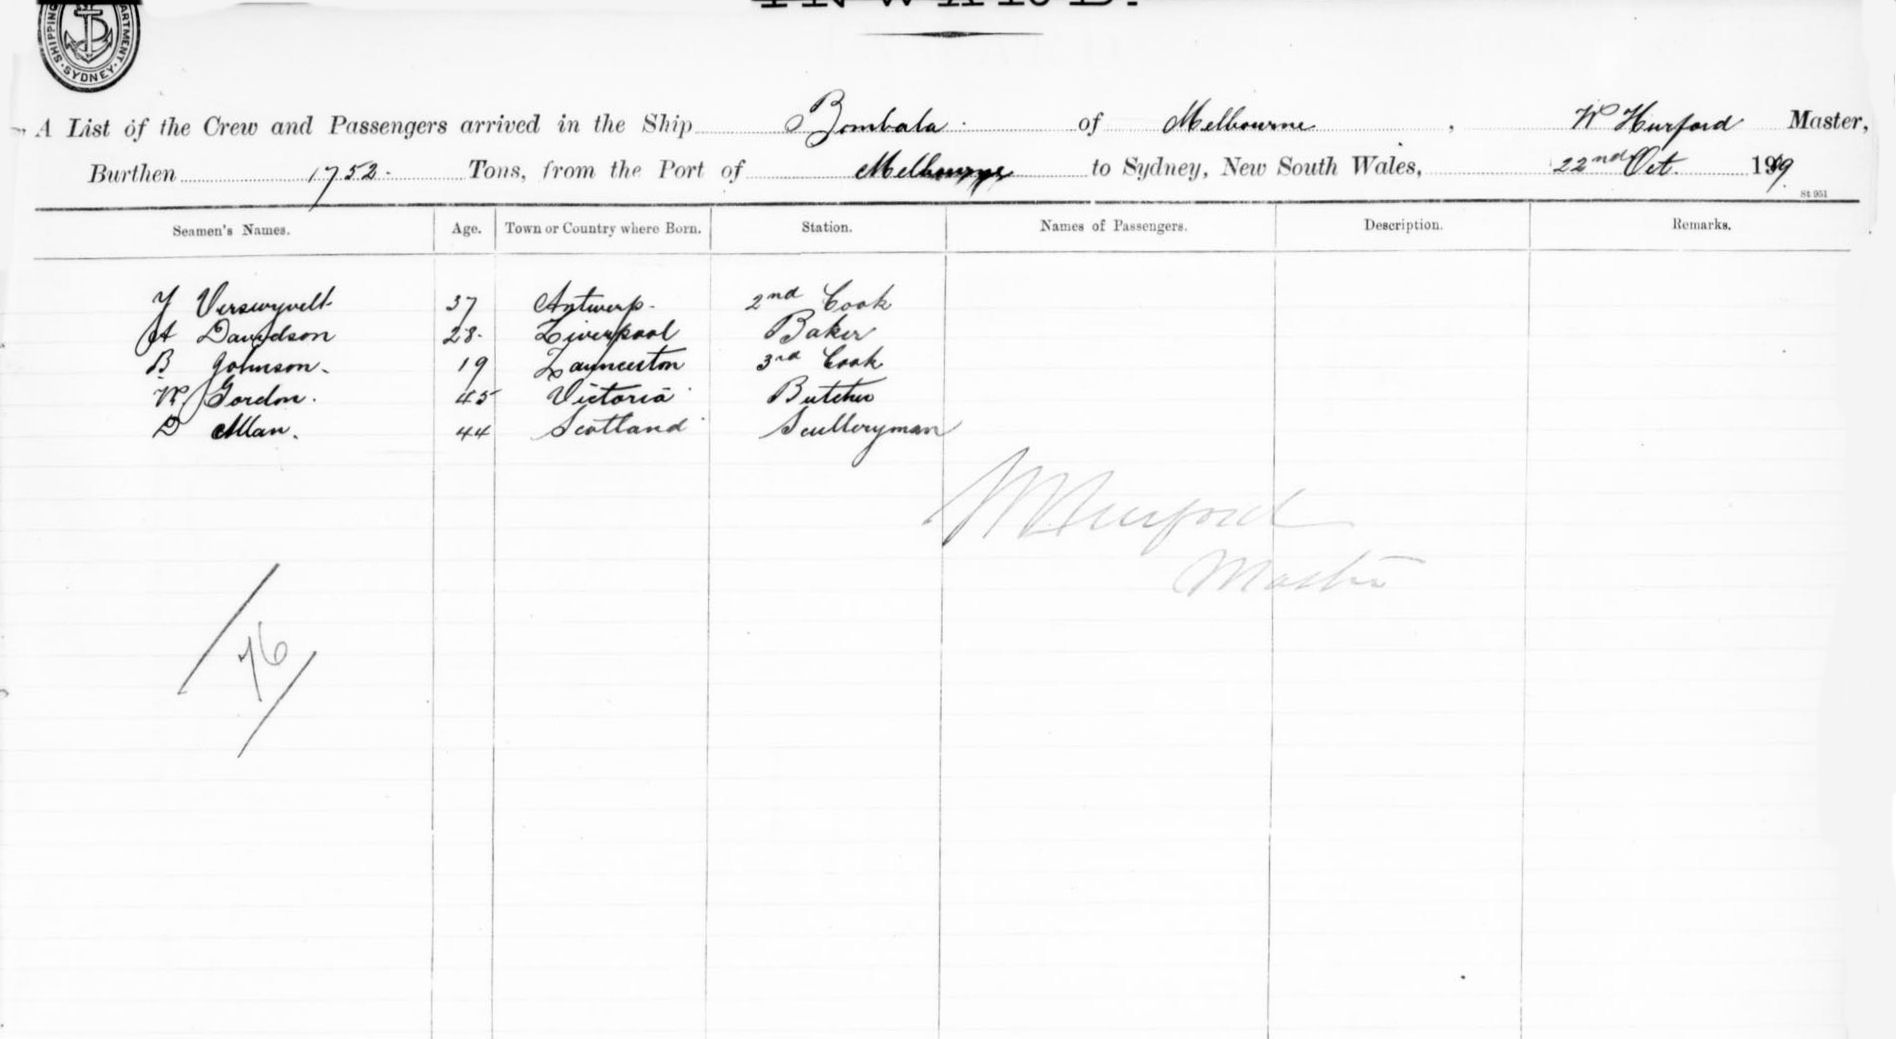 SHIPPING DEPARTMENT SYDNEY
INWARD.
A List of the Crew and Passengers arrived in the Ship Bombala of Melbourne, W Hurford Master,
Burthen 1752 Tons, from the Port of Melbourne to Sydney, New South Wales, 22nd Oct. 199
St 951
Seamen's Names. Age. Town or Country where Born. Station. Names of Passengers. Description. Remarks.
Verswyvelt 37 Antwerp. 2nd Cook
A Davidson 28. Liverpool Baker
B Johnson. 19 Launceston 3rd Cook
W Gordon. 45 Victoria Butcher
D Allan. 44 Scotland Sculleryman
W Hurford
Master
76